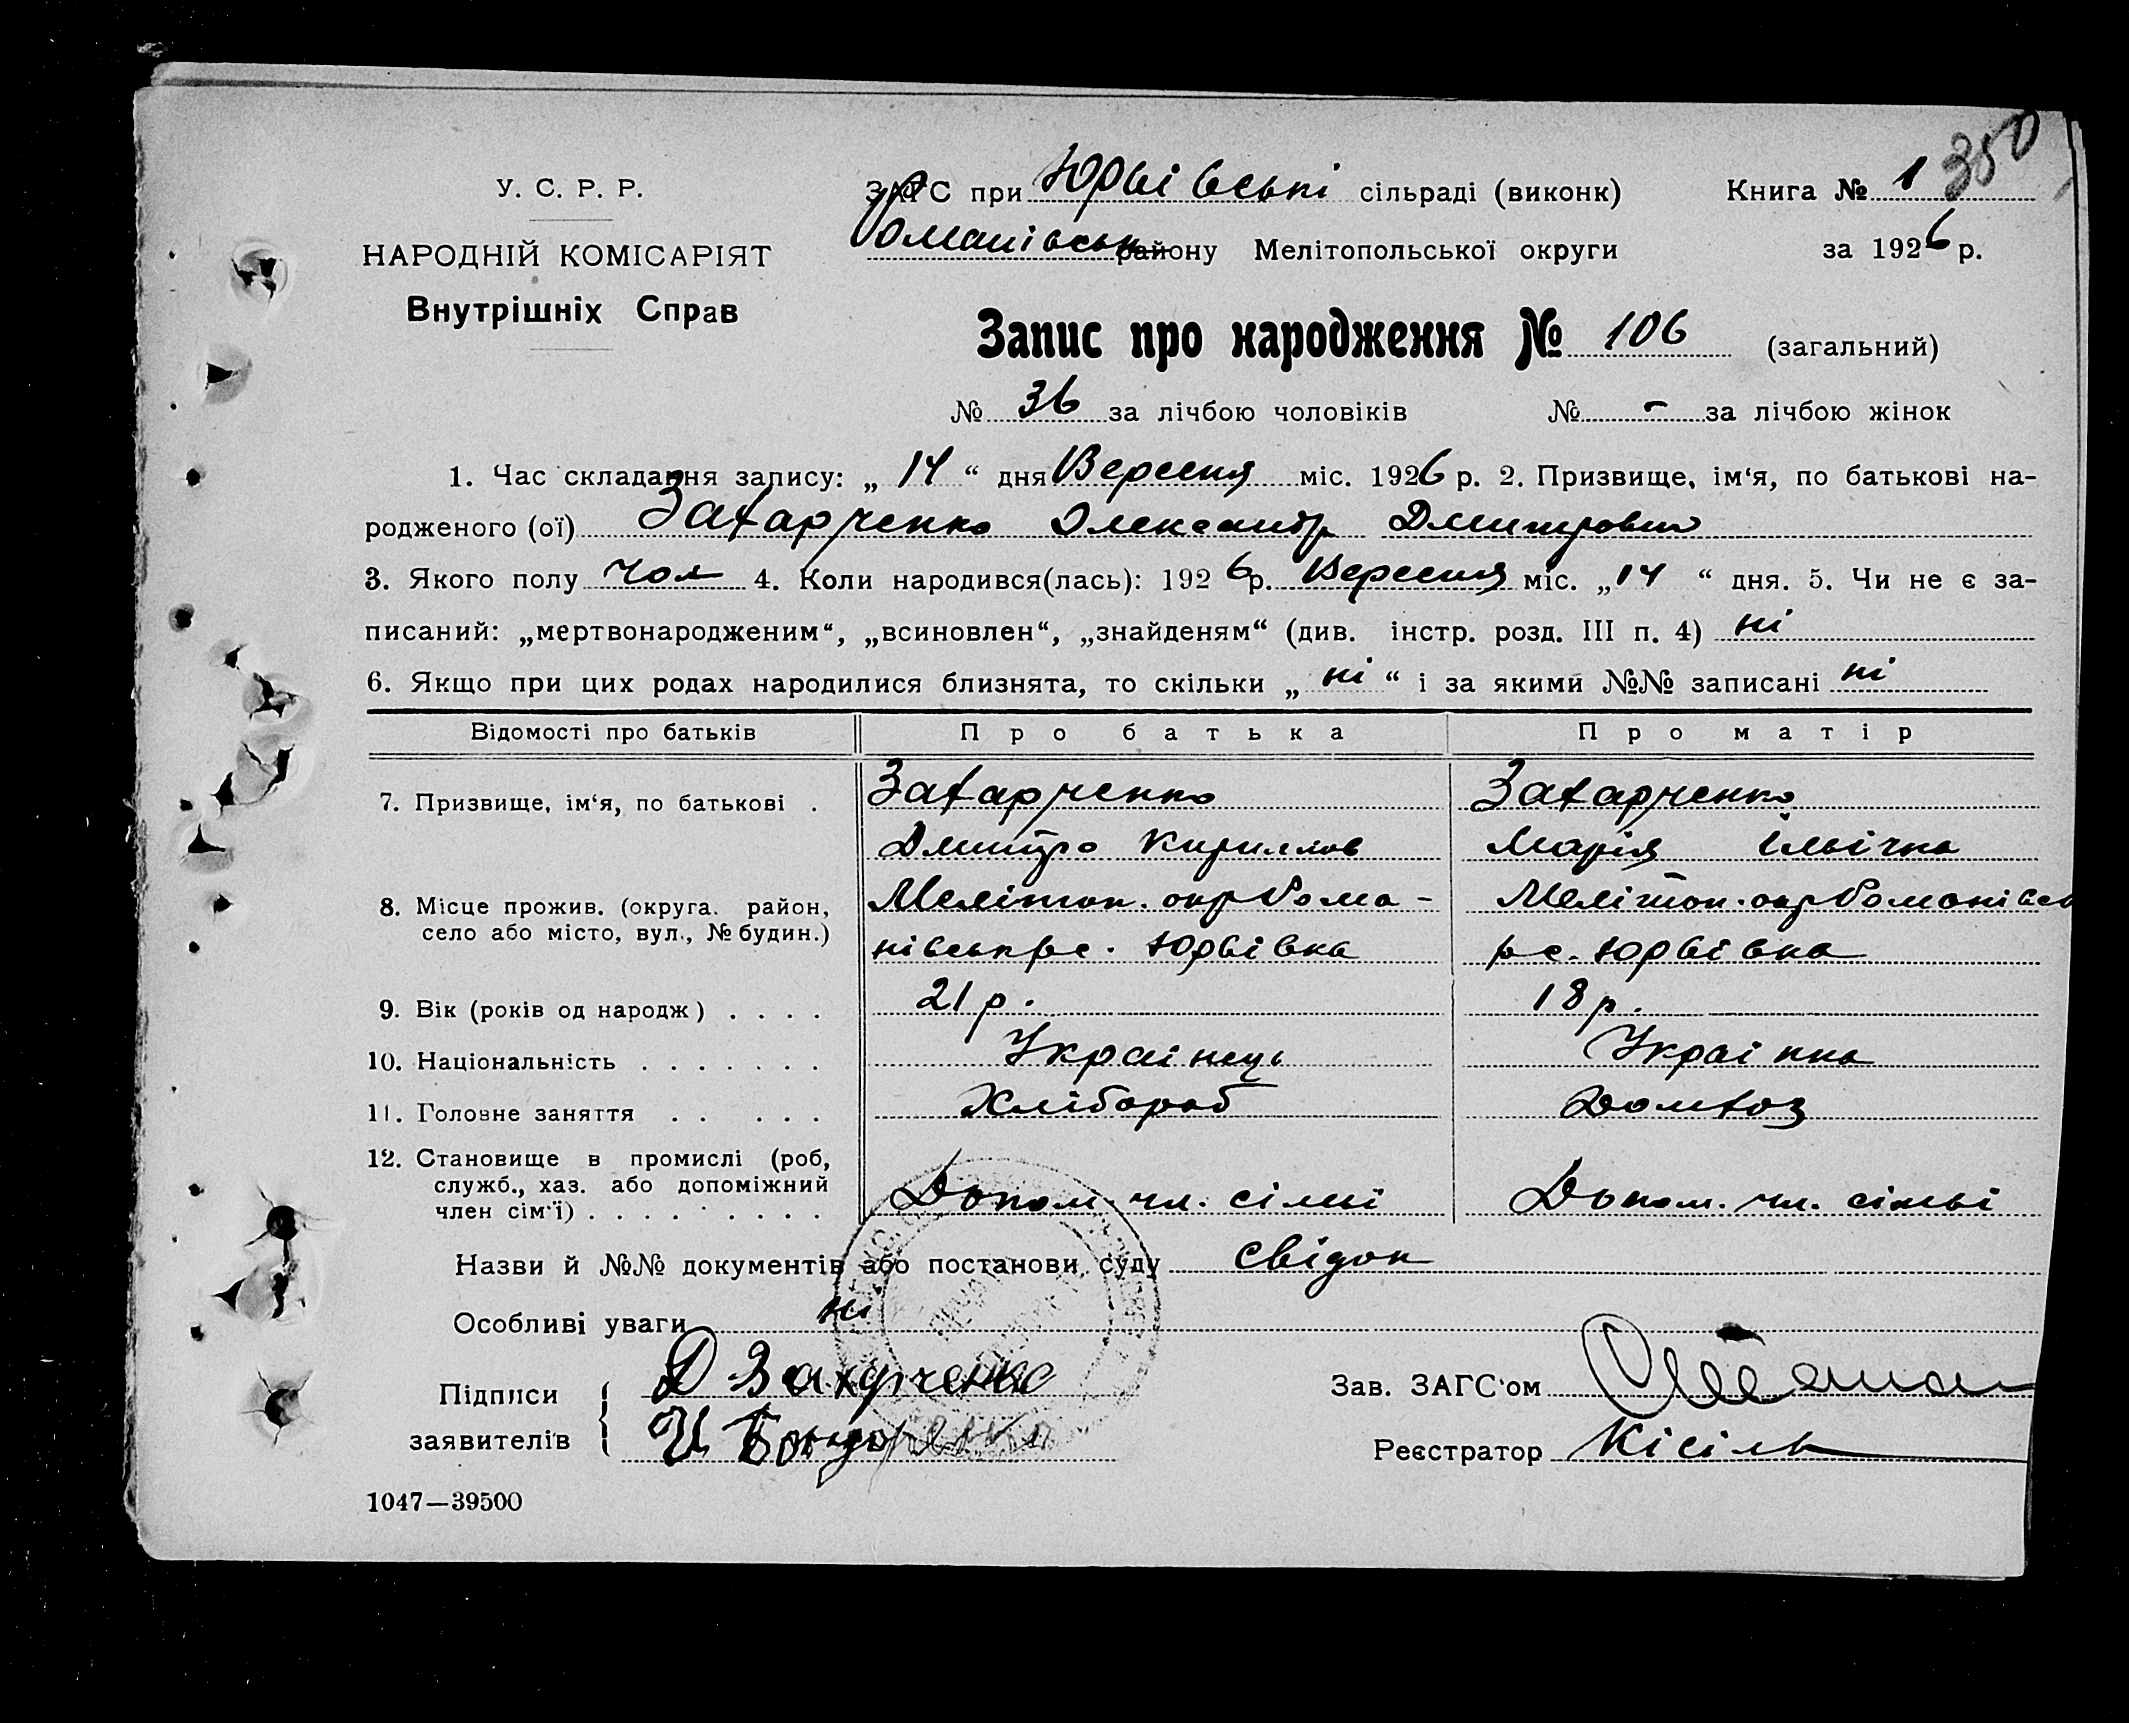 350
У. С. Р. Р.
ЗАГС при Юрьївські сільраді (виконк) Книга № 1
НАРОДНІЙ КОМІСАРІЯТ
Романівськ району Мелітопольської округи за 1926 р.
Внутрішніх Справ
Запис про народження № 106 (загальний)
№ 36 за лічбою чоловіків № - за лічбою жінок
1. Час складання запису: „ 14 “ дня Вересня міс. 1926 р. 2. Призвище, ім‘я, по батькові на-
родженого (ої) Захарченко Олександр Дмитрович
3. Якого полу Чол 4. Коли народився(лась): 1926 р. Вересня міс. „ 14 “ дня. 5. Чи не є за-
писаний: „мертвонародженим“, „всиновлен“, „знайденям“ (див. інстр. розд. III п. 4) ні
6. Якщо при цих родах народилися близнята, то скільки „ ні “ і за якими №№ записані ні
Відомості про батьків Про батька Про матір
7. Призвище, ім‘я, по батькові . Захарченко Захарченко
Дмитро Кириллов Марія Ільічна
8. Місце прожив. (округа. район, Мелітоп. окр Рома- Мелітоп. окр Романівськ
село або місто, вул., № будин.) нівськ р с. Юрьівка р с. Юрьівка
9. Вік (років од народж) . . . . 21 р. 18 р.
10. Національність . . . . . . . Українець Українка
11. Головне заняття . . . . . Хлібороб Домхоз
12. Становище в промислі (роб,
служб., хаз. або допоміжний Допом. чл. сімьї Допом. чл. сімьі
член сім‘ї) . . . . . . . . .
Назви й №№ документів або постанови суду Свідок
Особливі уваги ні
Підписи Д Захарченко Зав. ЗАГС‘ом
заявителів И Бондаренко Реєстратор Кісіль
1047—39500